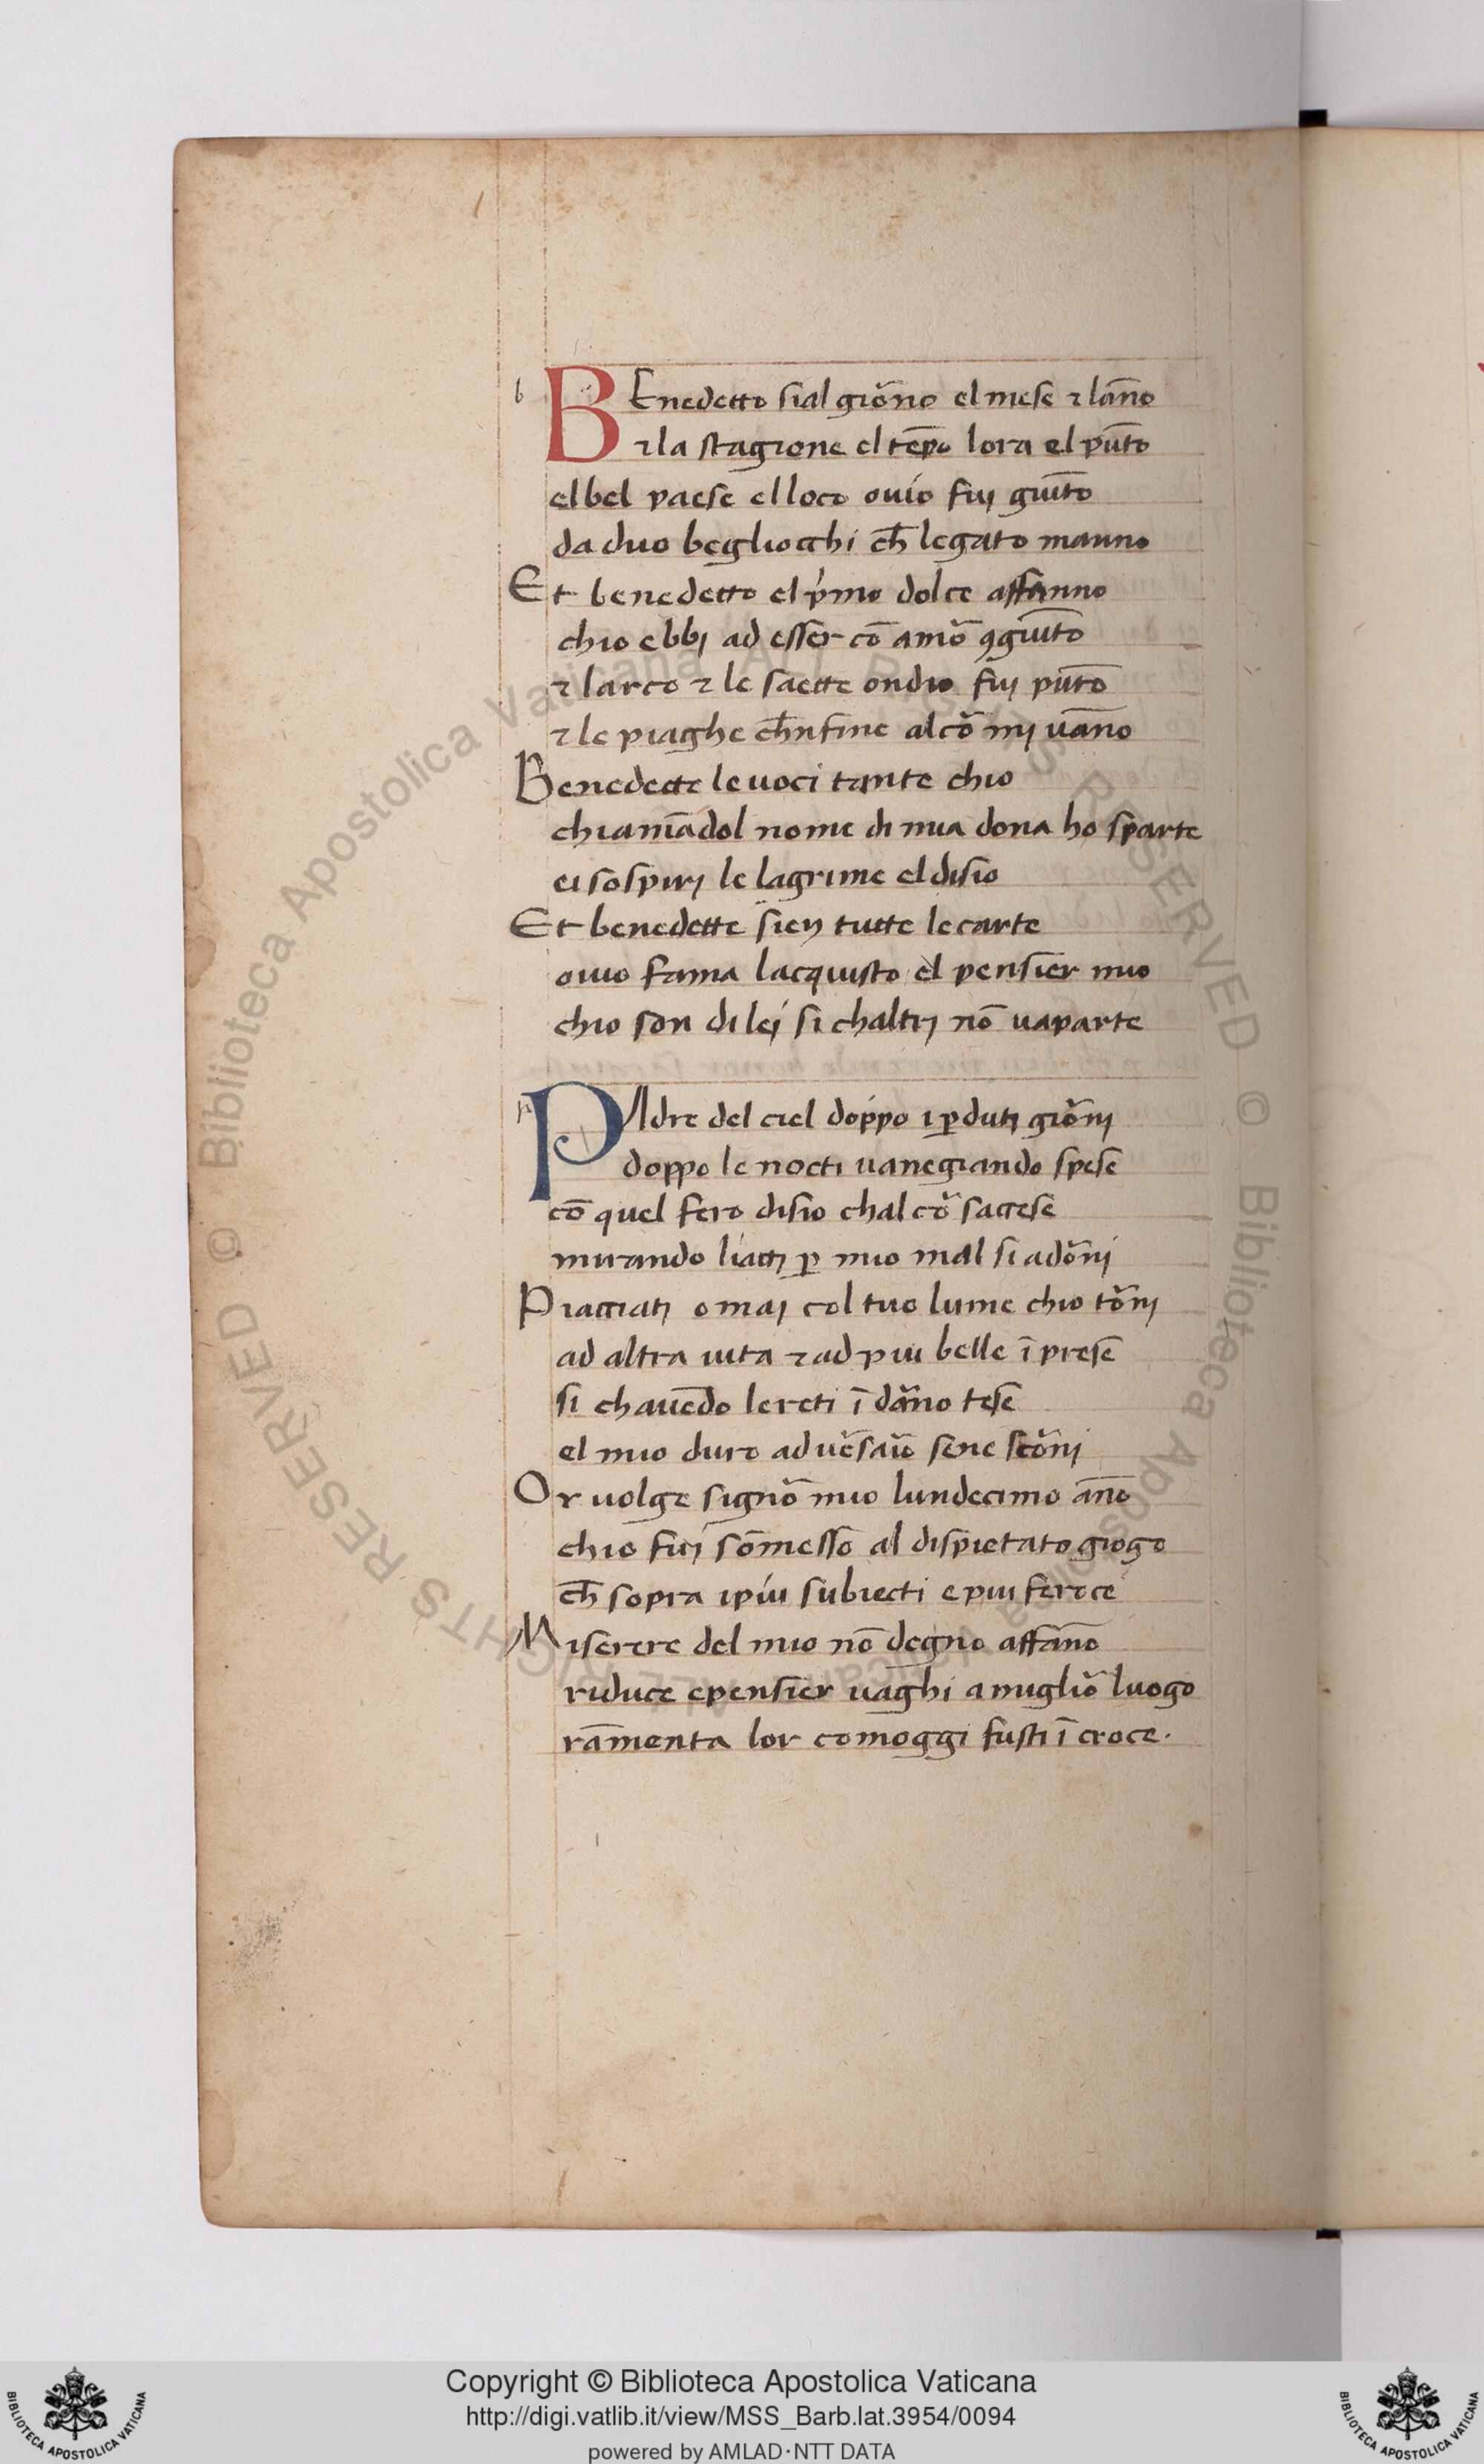 BEnedetto sial giōno el mese ⁊ lāno
⁊ la stagione el tēpo lora el pūto
el bel paese el loco ouio fuj giūto
da duo begliocchi ch̄ legato manno
Et benedetto el p̍mo dolce affanno
chio ebbj ad esser cō amō ꝯgiūto
⁊ larco ⁊ le saette ondio fuj pūto
⁊ le piaghe ch̄nfine alcō mj uāno
Benedette le uoci tante chio
chiamādol nome di mia dona ho sparte
ei sospirj le lagrime el disio
Et benedette sien tutte le carte
ouio fama lacquisto el pensier mio
chio son di lej si chaltrj nō ua parte
PAdre del ciel doppo i ꝑdutj giōnj
doppo le nocti uanegiando spese
cō quel fero disio chal cō saccese
mirando liattj ꝑ mio mal si adōnj
Piacciatj omaj col tuo lume chio tōnj
ad altra uita ⁊ ad piu belle īprese
si chauēdo le reti ī dāno tese
el mio duro aduēsaīo sene scōnj
Or uolge signō mio lundecimo āno
chio fuj sōmesso al dispietato giogo
ch̄ sopra i piu subiecti e piu feroce
Miserere del mio nō degno affāno
riduce e pensier uaghi a migliō luogo
rāmenta lor comoggi fusti ī croce.
Biblioteca Apostolica Vaticana ALL RIGHTS RESERVED © Biblioteca Apostolica Vaticana ALL RIGHTS RESERVED ©
Copyright © Biblioteca Apostolica Vaticana
http://digi.vatlib.it/view/MSS_Barb.lat.3954/0094
powered by AMLAD·NTT DATA
BIBLIOTECA APOSTOLICA VATICANA
BIBLIOTECA APOSTOLICA VATICANA